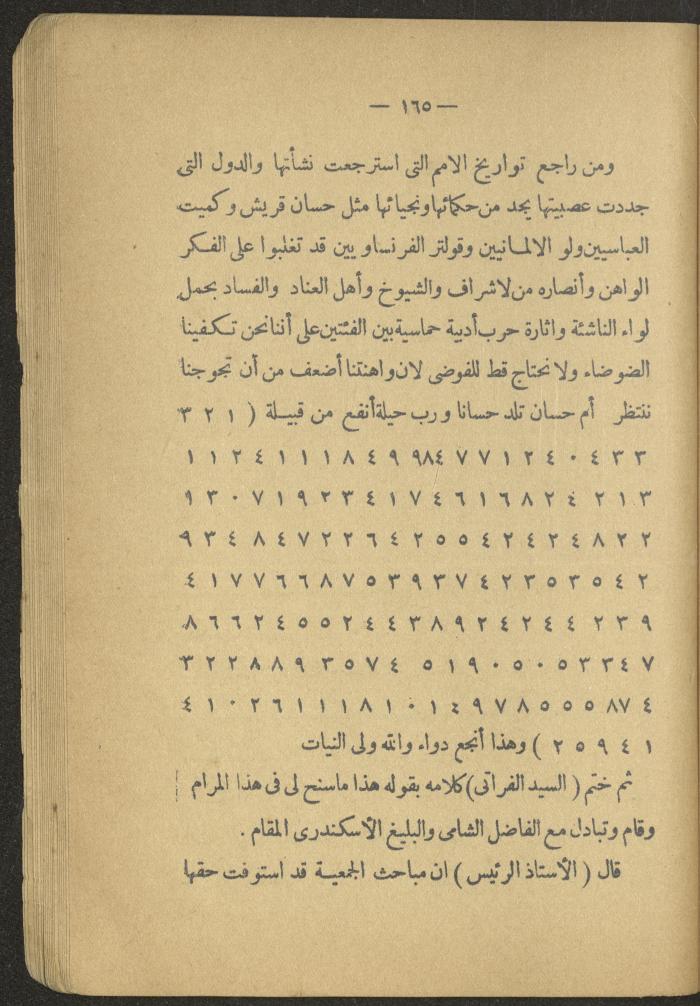 — ١٦٥ —
ومن راجع تواريخ الامم التى استرجعت نشأتها والدول التى
جددت عصبيتها يجد من حكمائها ونجبائها مثل حسان قريش وكميت
العباسيين ولو الالمانيين وفولتر الفرنساويين قد تغلبوا على الفكر
الواهن وأنصاره من لاشراف والشيوخ وأهل العناد والفساد بحمل
لواء الناشئة واثارة حرب أدبية حماسية بين الفئتين على أننا نحن تكفينا
الضوضاء ولا نحتاج قط للفوضى لان واهنتنا أضعف من أن تحوجنا
ننتظر أم حسان تلد حسانا ورب حيلة أنفع من قبيلة ( ١ ٢ ٣
٣ ٣ ٤ ٠ ٤ ٢ ١ ٧ ٧ ٩٨٤ ٩ ٤ ٨ ١ ١ ١ ٤ ٢ ١ ١
٣ ١ ٢ ٤ ٢ ٨ ٦ ١ ٦ ٤ ٧ ١ ٤ ٣ ٢ ٩ ١ ٧ ٠ ٣ ٩
٢ ٢ ٨ ٤ ٢ ٤ ٢ ٤ ٥ ٥ ٢ ٤ ٦ ٢ ٢ ٧ ٤ ٨ ٤ ٣ ٩
٢ ٤ ٥ ٣ ٥ ٣ ٢ ٤ ٧ ٣ ٩ ٣ ٥ ٧ ٨ ٦ ٦ ٧ ٧ ١ ٤
٩ ٣ ٢ ٤ ٤ ٢ ٤ ٢ ٩ ٨ ٣ ٤ ٤ ٢ ٥ ٥ ٤ ٢ ٦ ٦ ٨
٧ ٤ ٣ ٣ ٥ ٠ ٥ ٠ ٩ ١ ٥ ٤ ٧ ٥ ٣ ٩ ٨ ٨ ٢ ٢ ٣
٤ ٨٧ ٥ ٥ ٥ ٨ ٧ ٩ ٤ ١ ٠ ١ ٨ ١ ١ ١ ٦ ٢ ٠ ١ ٤
١ ٤ ٩ ٥ ٢ ) وهذا أنجع دواء والله ولى النيات
ثم ختم ( السيد الفراتى ) كلامه بقوله هذا ما سنح لى فى هذا المرام
وقام وتبادل مع الفاضل الشامى والبليغ الأسكندرى المقام .
قال ( الأستاذ الرئيس ) ان مباحث الجمعية قد استوفت حقها